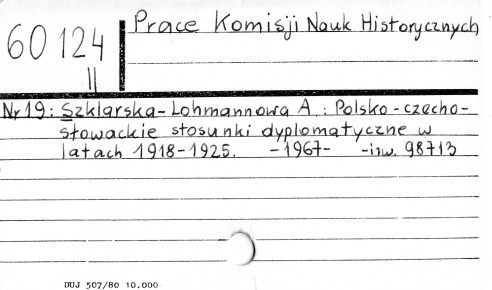 60124
II
Prace Komisji Nauk Historycznych
Nr 19: Szklarska-Lohmannowa A.: Polsko-czecho-
słowackie stosunki dyplomatyczne w
latach 1918-1925. -1967- -inw. 98713
DUJ 507/80 10.000